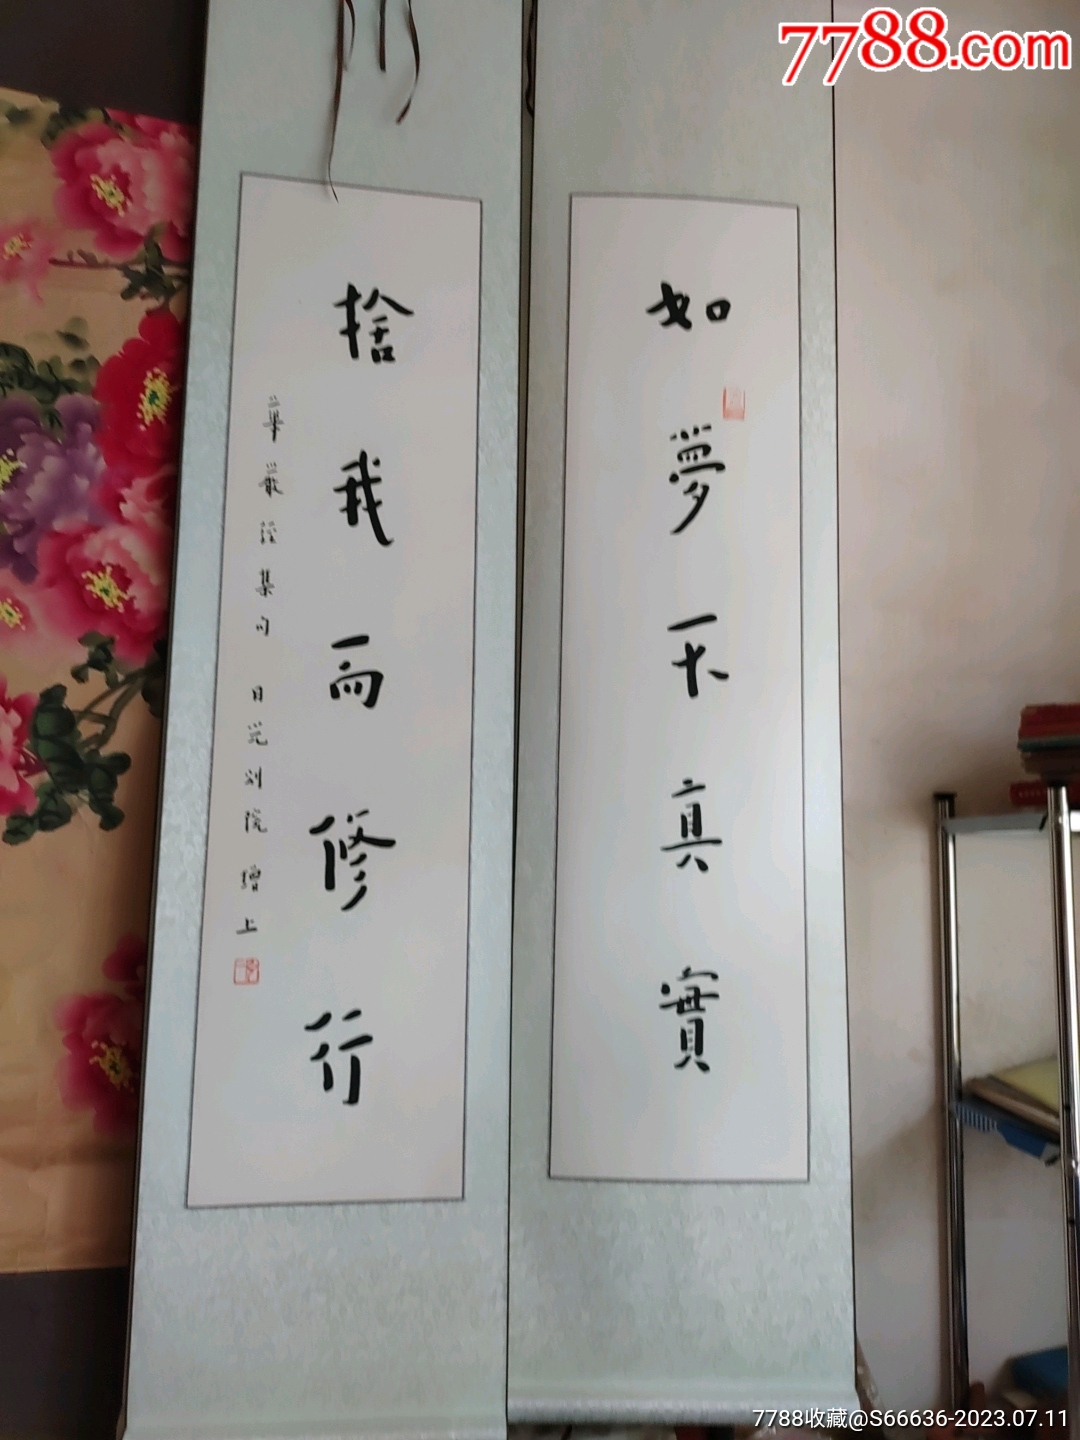 7788.com
如夢不真實
捨我而修行
華嚴經集句 日光別院 增上
7788收藏@S66636-2023.07.11